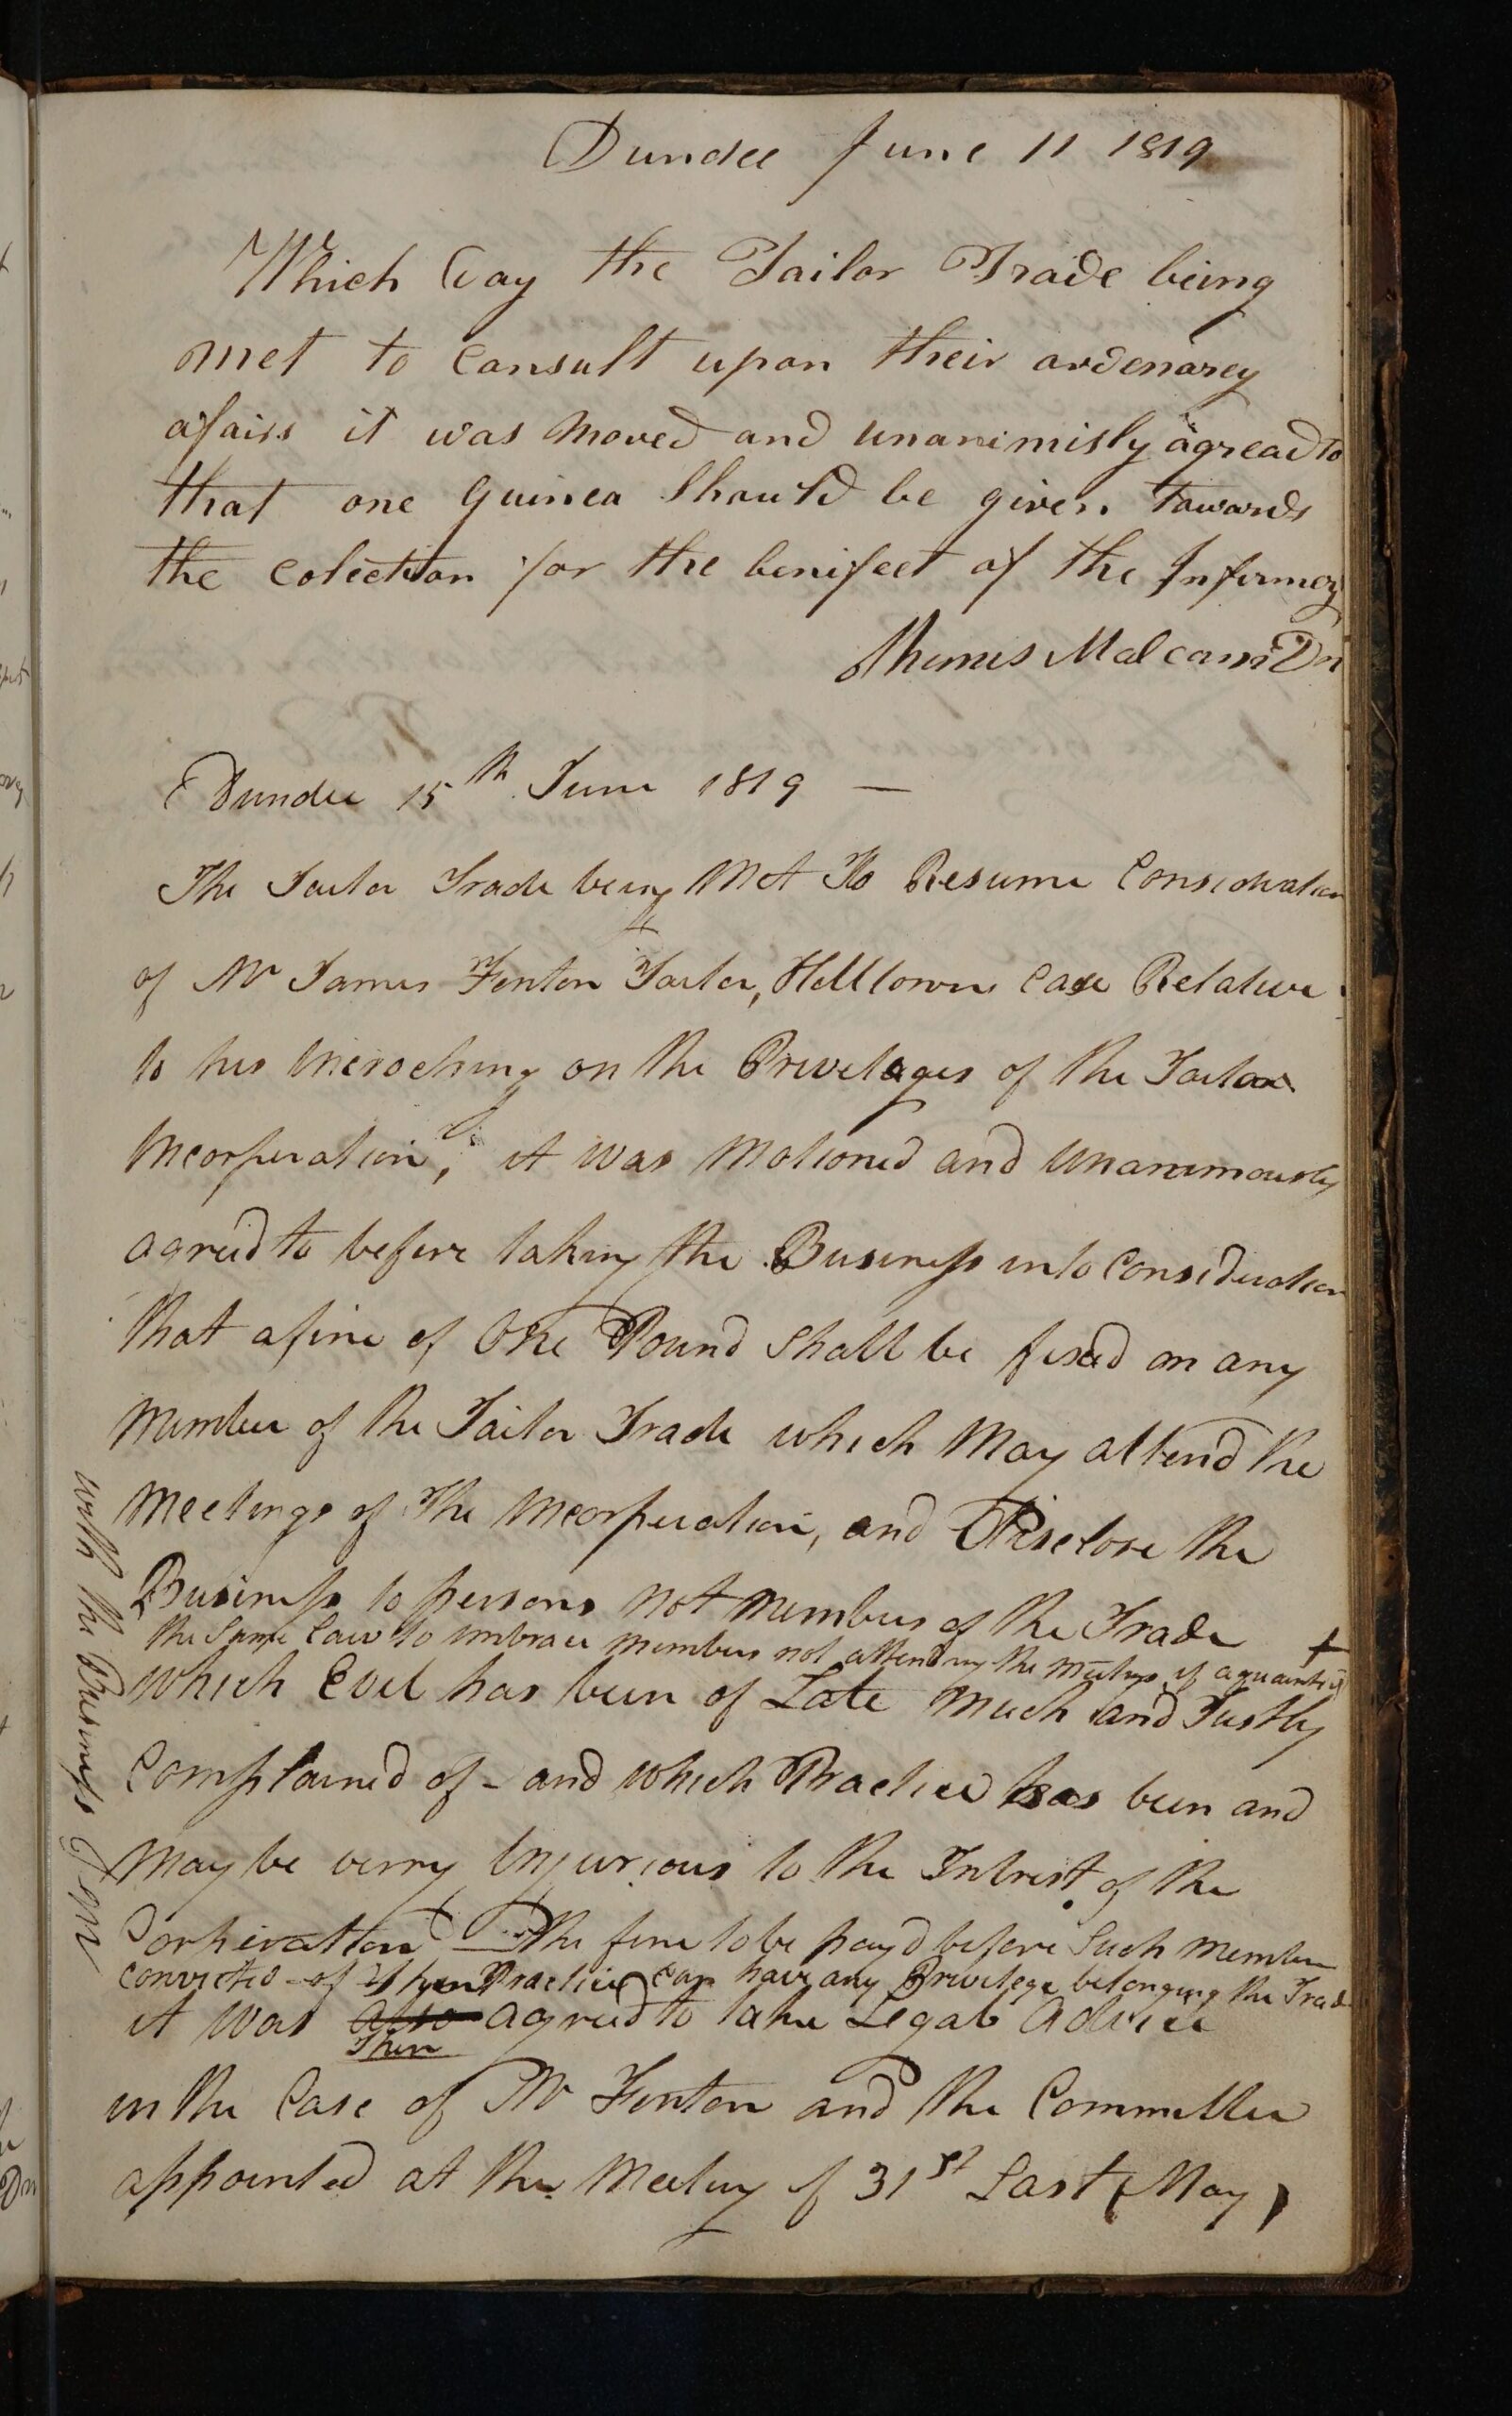 Dundee June 11 1819
Which Day the Tailor Trade being
met to Consult upon their ordenarey
afairs it was Moved and unanimisly agread to
that one Guinea Should be given towards
the Colection for the benifeet of the Infirmery
Thomas Malcom Dn
Dundee 15th June 1819 —
The Tailor Trade being Met To Resume Consideration
of Mr James Fenton Tailor, Hilltown Case Relative
to his Incroching on the Privelages of the Tailor
Incorperation, it was Motioned and Unanimously
agreed to before taking the Business into Consideration
that a fine of One Pound Shall be fixed on any
Member of the Tailor Trade which May attend the
Meetings of The Incorperation, and Disclose the
Business to persons not Members of the Trade +
the Same Law to imbrace members not attending the Meetings if aquainted
with the Business J or W
which Evil has been of Late Much and Justly
Complained of - and which Practice has been and
May be verry Injurious to the Intrest of the
Corperation The fine to be pay'd before Such Member
convicted of Such Practice can have any Privelege belonging the Trade
it was also agreed to take Legal Advice
Then
in the Case of Mr Fenton and the Committee
appointed at the Meeting of 31st Last (May)